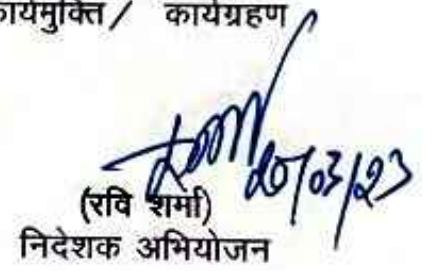 कार्यमुक्ति/ कार्यग्रहण
20/03/23
(रवि शर्मा)
निदेशक अभियोजन